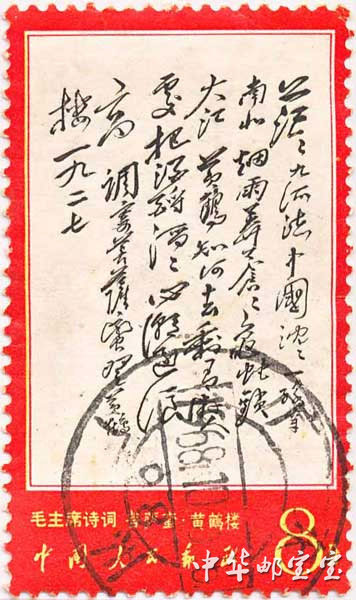 茫々九派流中國沈々一线穿
南北烟雨莽苍々龟蛇鎖
大江黄鶴知何去剩有游人
處把酒酹滔々心潮逐浪
高調寄菩薩蛮登黄鶴
楼一九二七
毛主席诗词 菩萨蛮·黄鹤楼
中国人民邮政
8分
中华邮宝宝